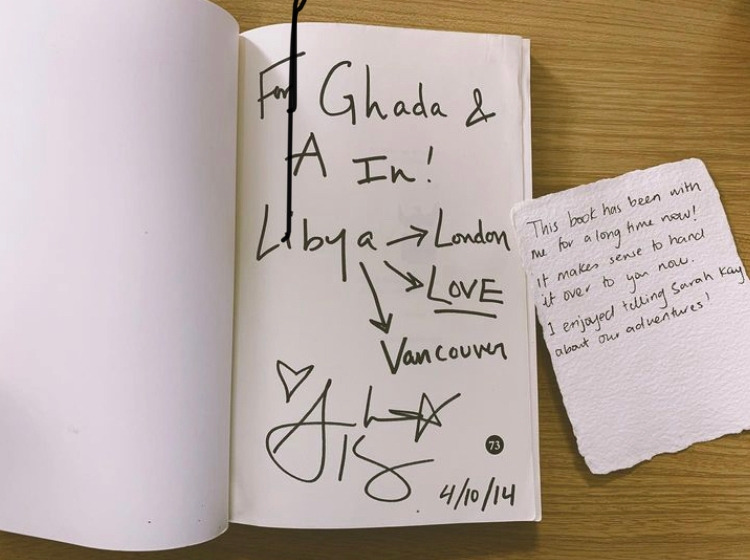 For Ghada &
A In!
Libya → London
LOVE
Vancouver
73
4/10/14
This book has been with
me for a long time now!
it makes sense to hand
it over to you now.
I enjoyed telling Sarah Kay
about our adventures!